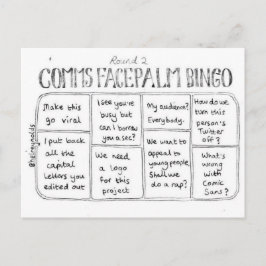 Round 2
COMMS FACEPALM BINGO
Make this
go viral
I see you're
busy but
can I borrow
you a sec?
My audience?
Everybody.
How do we
turn this
person's
Twitter
off?
I put back
all the
capital
letters you
edited out
We need
a logo
for this
project
We want to
appeal to
young people
Shall we
do a rap?
What's
wrong
with
Comic
Sans?